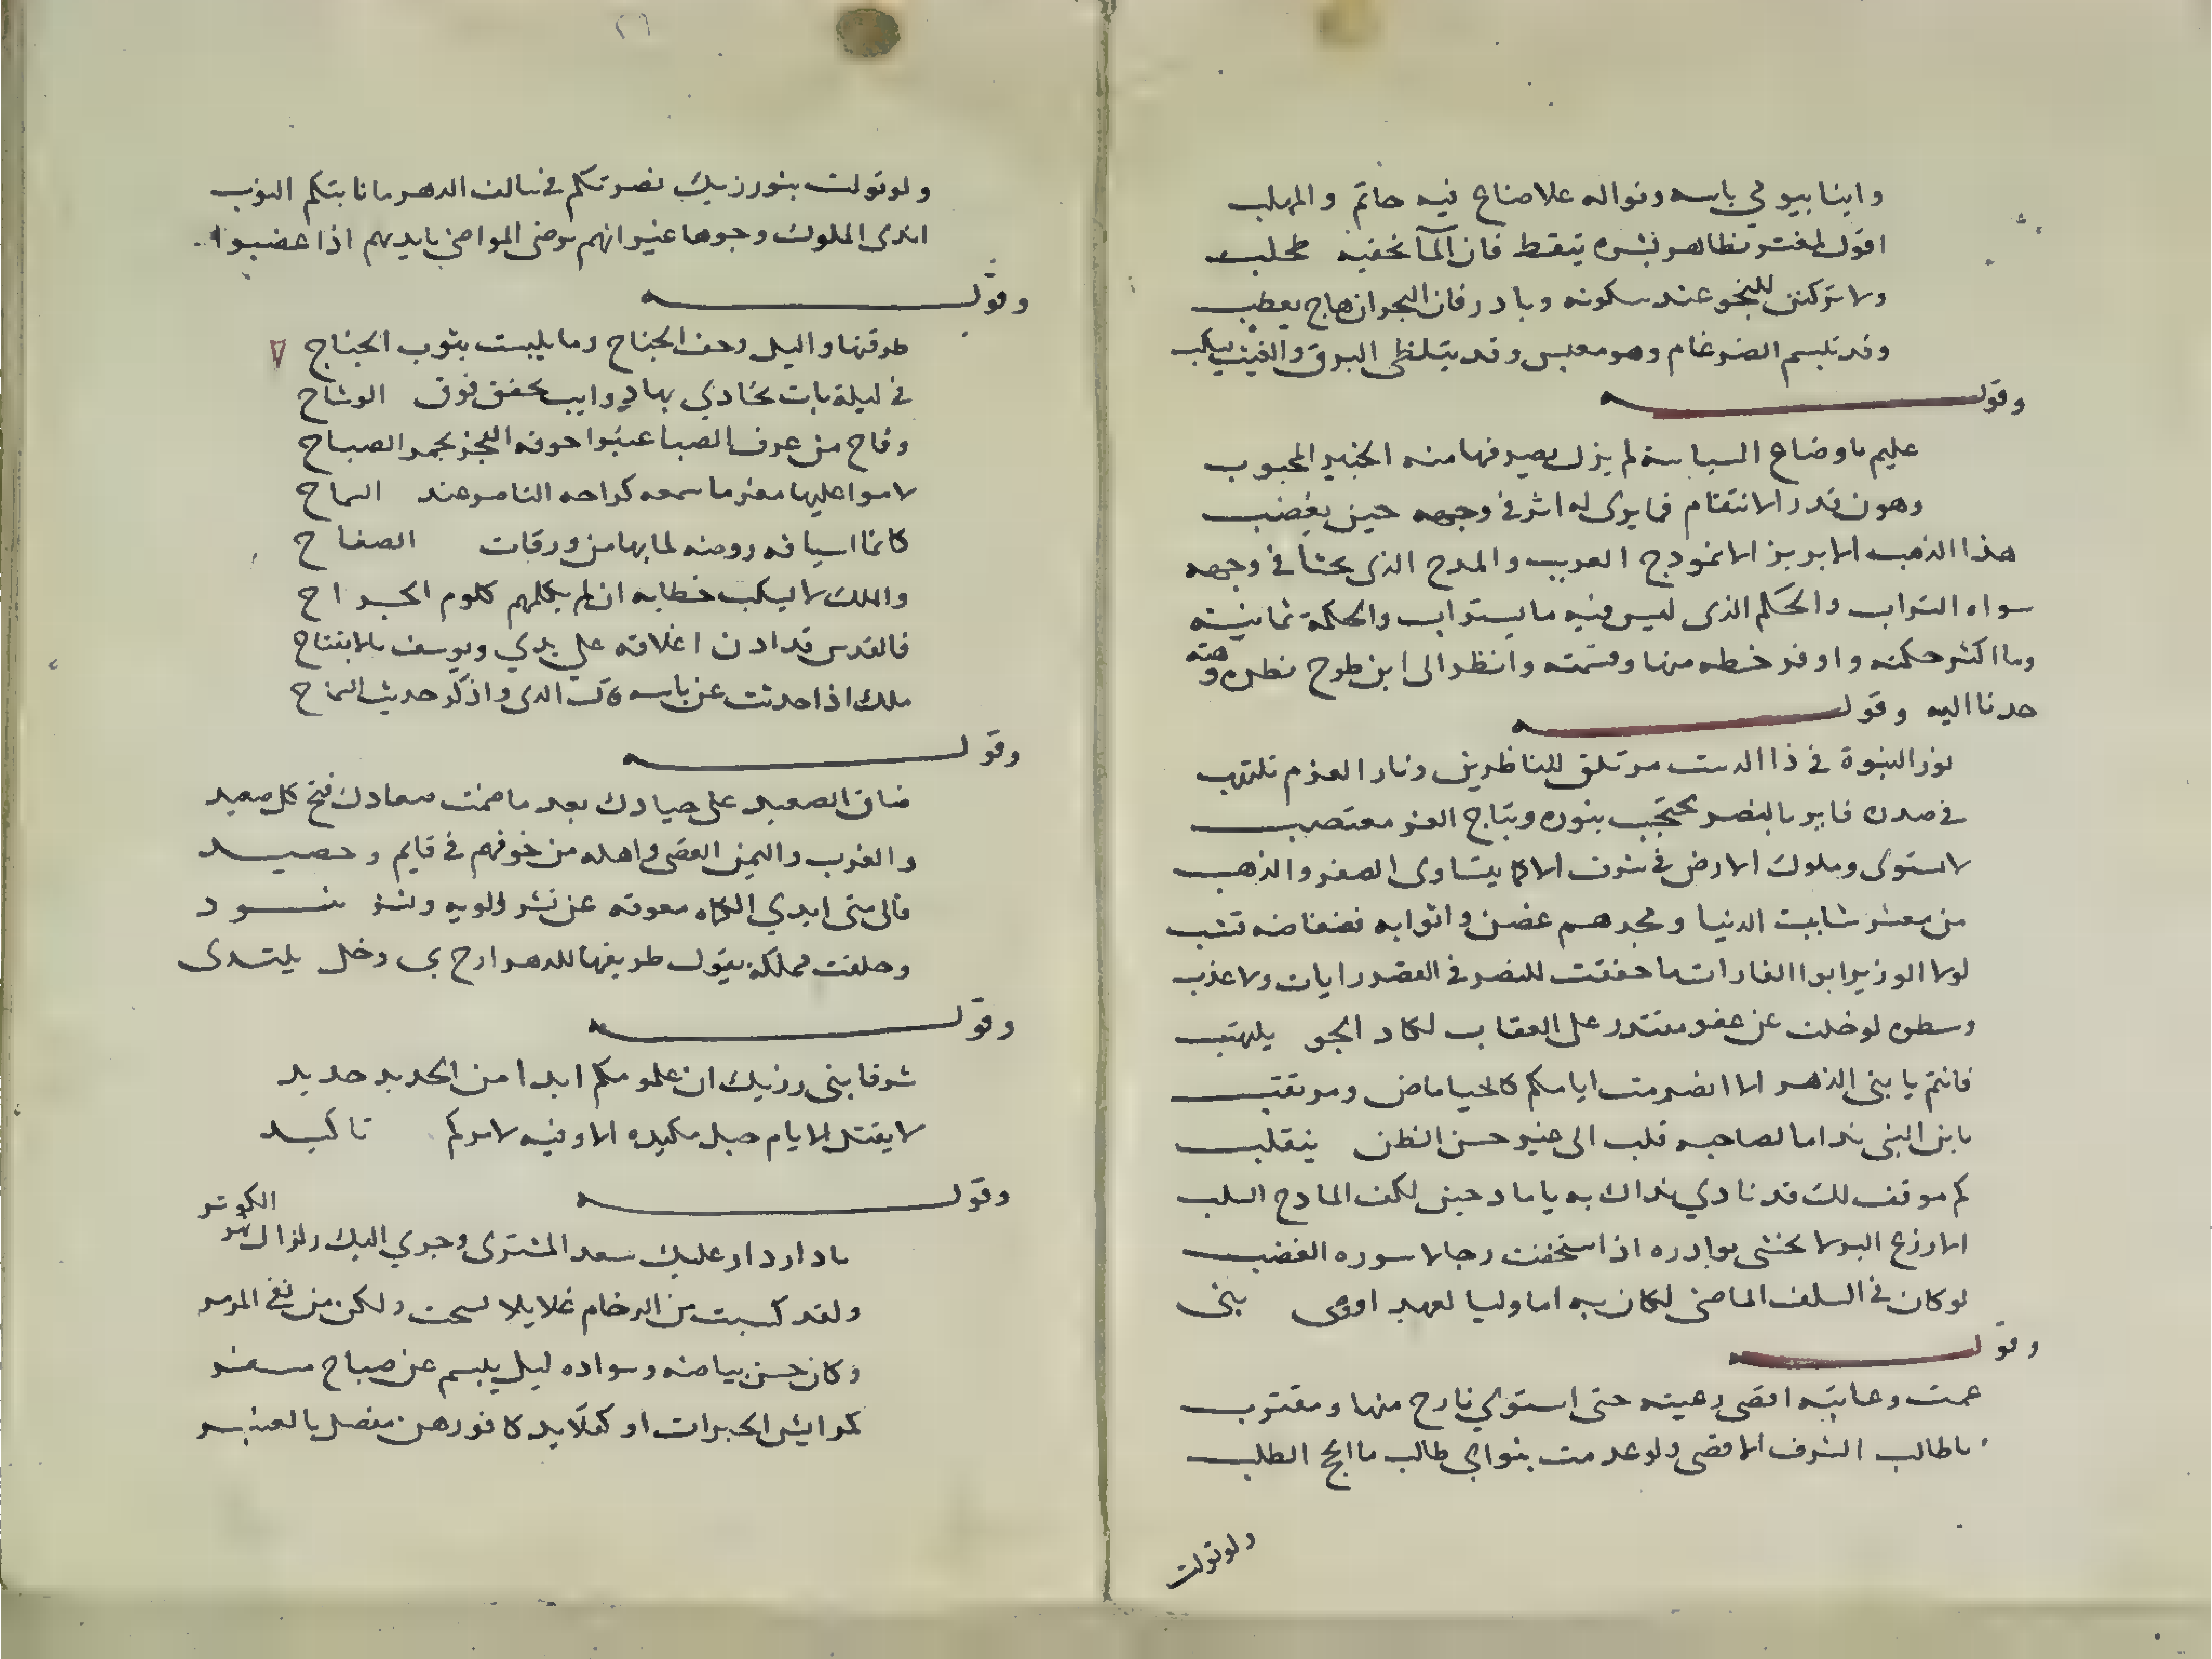 واينا بيو في باسه ونواله علا ضاع فيه حاتم والمهلب
اقول لمغتر بظاهر بشره تيقظ فان الماء تخفيه طحلب
ولا تركنن للبحر عند سكونه وبادر فان البحر ان هاج يعطب
وقد تبسم الضرغام وهو معبس وقد يتلظى البرق والغيث يسكب
وقوله
عليم باوضاع السياسة لم يزل بصير فيها منه الخبير المجبوب
وهون قدر الانتقام فما يرى له اثر في وجهه حين يغضب
هذا الذهب الابريز الانموذج الغريب والمدح الذى يحثا في وجهه
سواه التراب والحكم الذى ليس فيه ما يستراب والحكمة ثمانيته
وما اكثر حكمته واوفر خطه منها وقسمته وانظر الى ابن طوح نطره وهته
حدنا اليه وقوله
نور النبوة في ذا الدست موتلق للناظرين ونار العزم تلتهب
في صدره فايز بالنصر محتجب بنوره وبتاج العز معتصب
لا استوى وملوك الارض في شرف الا كما يتساوى الصفر والذهب
من معشر شابت الدنيا ومجدهم غصن واثوابه فضفاضه قشب
لولا الوزير ابوا الغارات ما خفقت للنصر في القصر رايات ولا عذب
وسطوه لو خلت عن عفو مقتدر على العقاب لكاد الجو يلتهب
فانتم يا بنى الزهر الا انصرمت ايامكم كالحيا ماض ومرتقب
يا بن النبى ندا ما لصاحبه قلب الى غير حسن الظن ينقلب
كم موقف لك قد نادي نداك به يا مادحين لكف المادح السلب
الاروع البر لا تخشى بوادره اذا استخفت رجالا سوره الغضب
لو كان في السلف الماضى لكان به اما وليا لعهد او وصى بنى
وقوله
عمت رعايته اقصى رعيته حتى استوي نازح منها ومقترب
يا طالب الشرف الاقصى ولو عدمت بنو ابي طالب ما انجح الطلب
ولو تولت
ولو تولت بنو رزيك نصرتكم في سالف الدهر ما نابتكم النوب
اندى الملوك وجوها غير انهم ترضى المواضى بايديهم اذا غضبوا
وقوله
طرقتها والليل وحف الجناح وما تلبست بثوب الجناح
في ليلة بات تحادي بها ذوايب تخفق فوق الوشاح
وفاح من عرف الصبا عنبرا حرقه الفجر بجمر الصباح
لاموا عليها مغرما سمعه كراحه الناصر عند السماح
كانما اسيافه روضه لما بها من ورقات الصفاح
والملك لا ليكب خطابه ان لم يكلمهم كلوم الجراح
فالقدس قد اذن اغلاقه على يدي ويوسف بالانفتاح
ملك اذا حدثت عن باسه كان الندى واذكر حديث السماح
وقوله
ضاق الصعيد على جيادك بعد ما ضمنت صعادك فتح كل صعيد
والغرب واليمن القصى واهله من خوفهم في قايم وحصيد
فالى متى ايدي الكماه معوقه عن نشر الويه ونشر بنود
وخلفت مملكة يقول طريفها للدهر ارح بي وخل يلتدى
وقوله
شرفا بنى رزيك ان علومكم ابدا من الحديد حديد
لا يفتل الايام حبل مكيده الا وفيه لامركم تاكيد
وقوله
يا دار دار عليك سعد المشترى وجرى اليك زلزال نهر الكوثر
ولقد كسيت من الرخام غلايلا نسجت ولكن من نقى المرمر
وكان حسن بياضه وسواده ليل يبسم عن صباح مسفر
كموايش الحبرات او كقلايد كافورهن مفصل بالعنبر